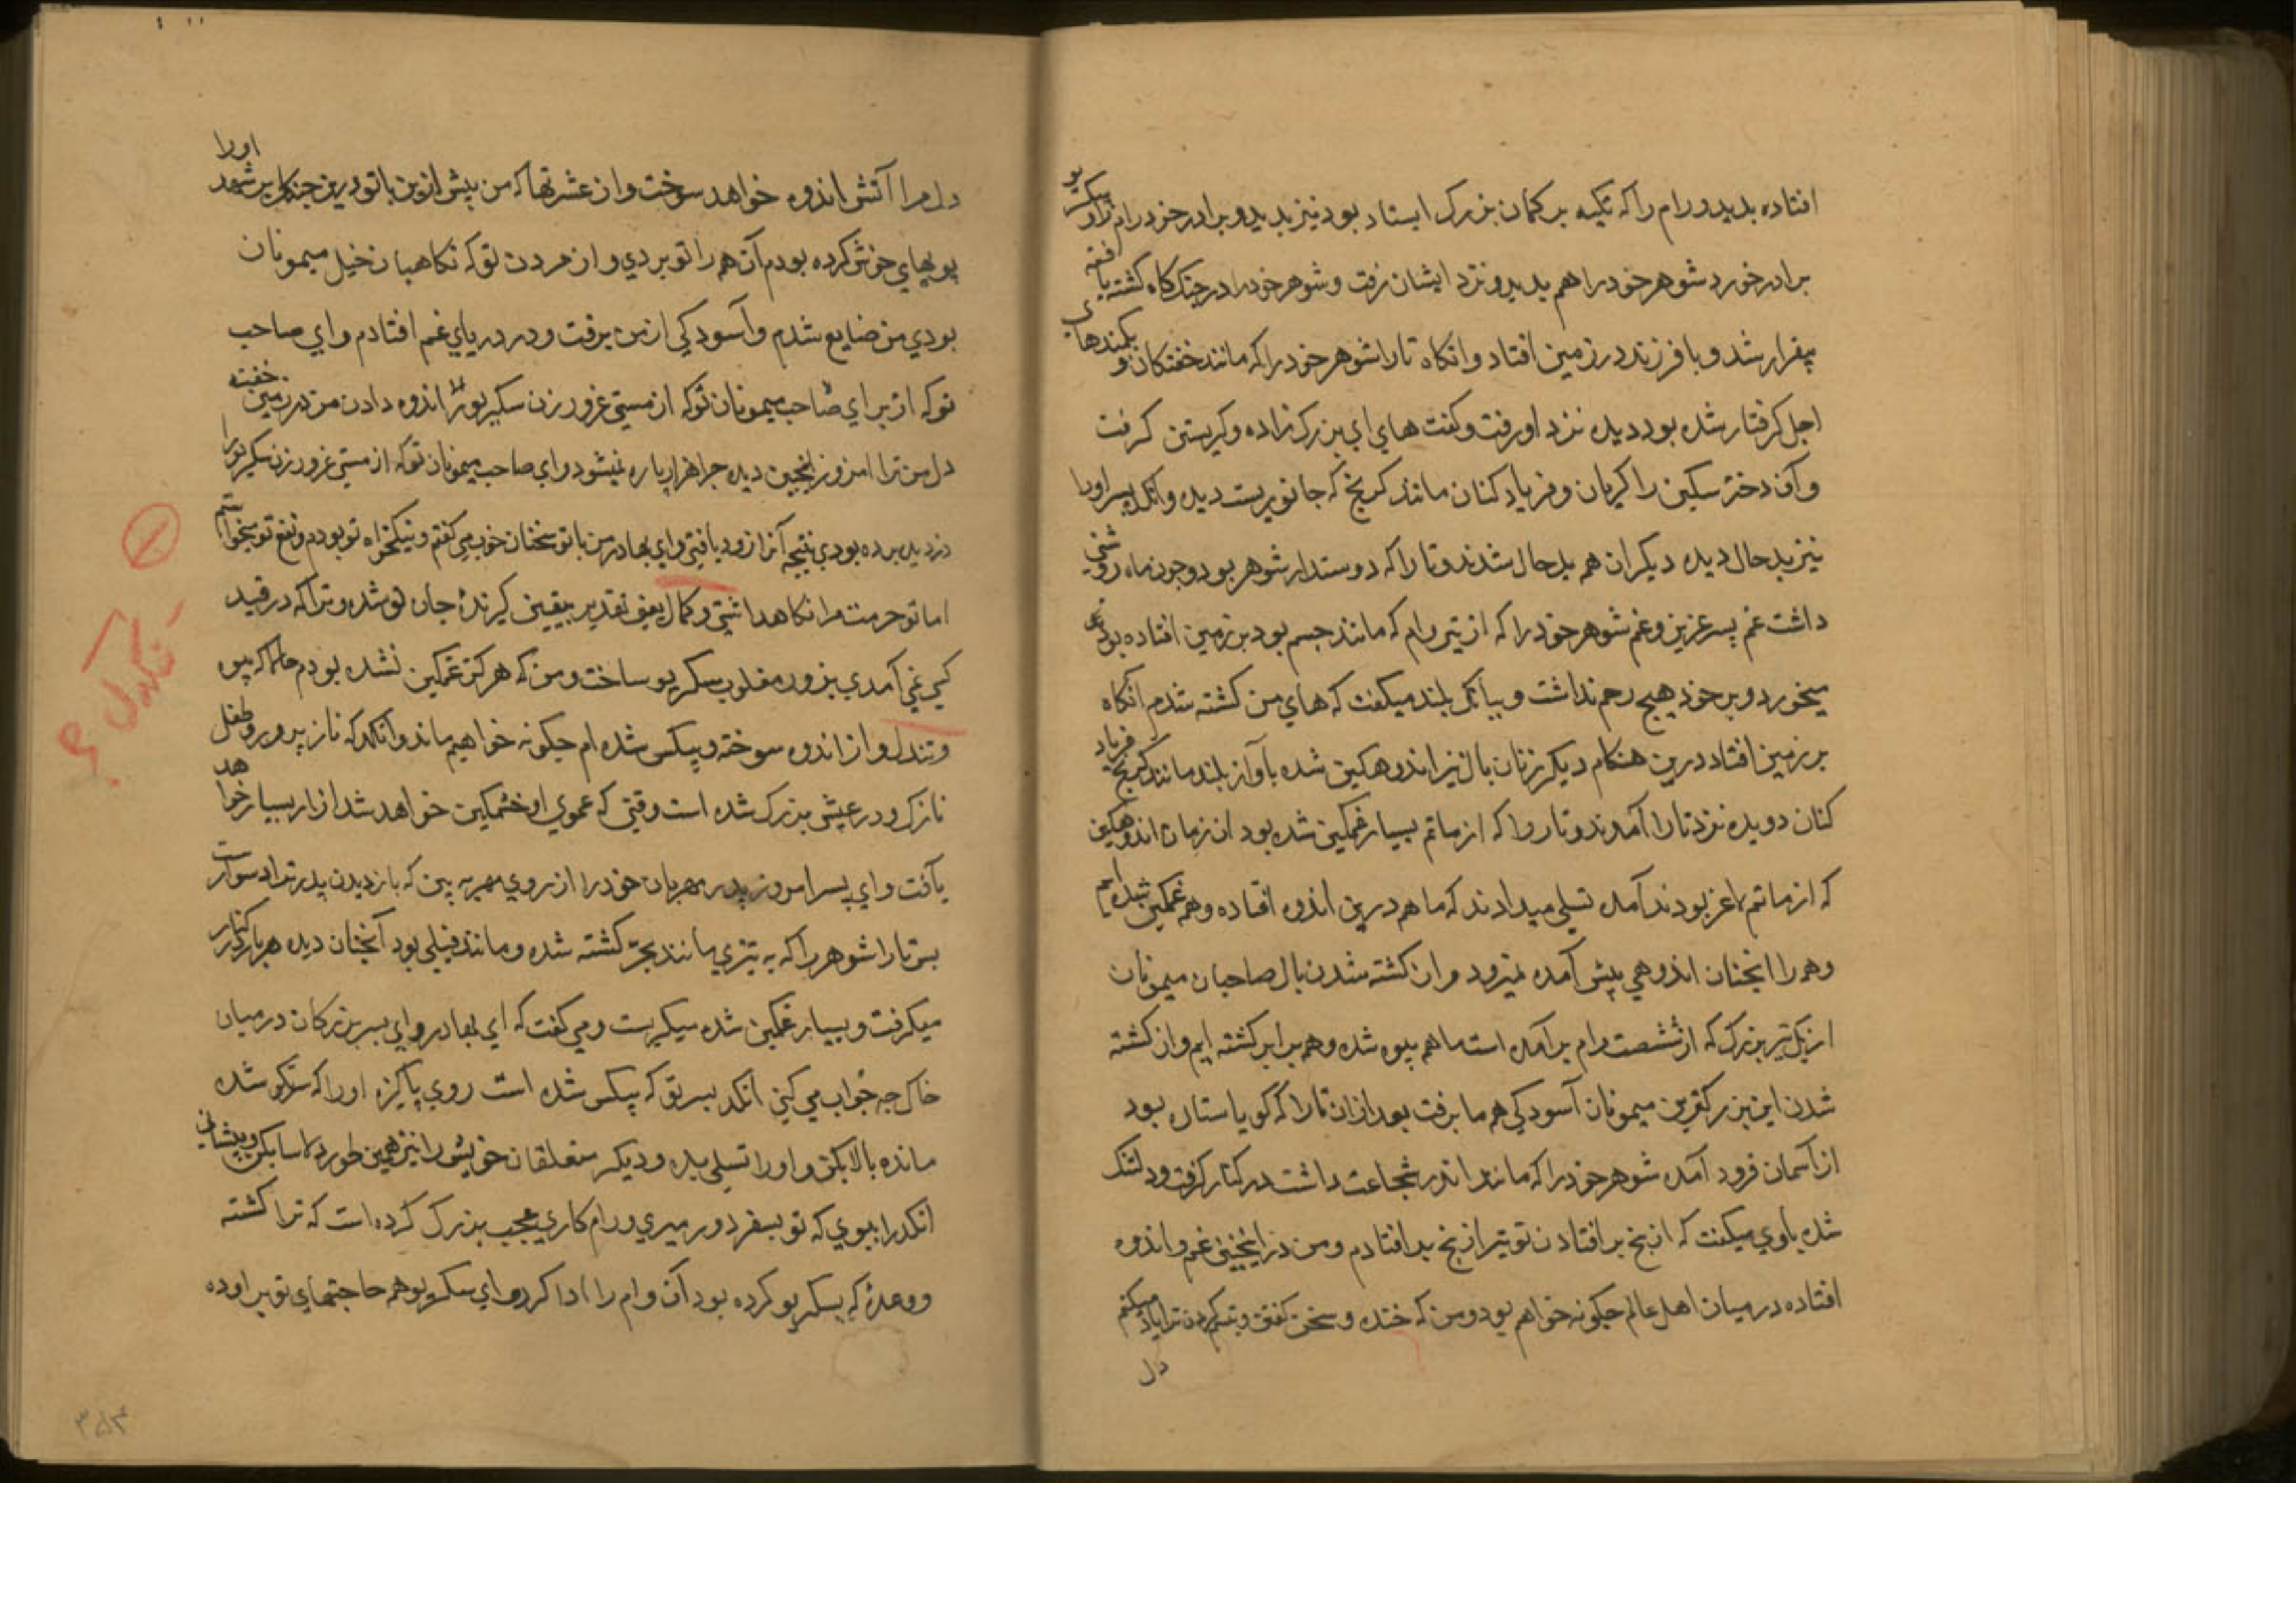 افتاده بدید و رام را که تکیه بر کمان بزرک ایستاد بود نیز بدید و برادر خورد رام را و سکریو
برادر خورد شوهر خود را هم بدید و نزد ایشان نرفت و شوهر خود را در جنک کاه کشته یافته
بیقرار شد و با فرزند در زمین افتاد و انکاه تارا شوهر خود را که مانند خفتکان و بکمندهای
اجل کرفتار شده بود دیده نزد او رفت و کفت های ای بزرک زاده و کریستن کرفت
و آن دختر سکین را کریان و فریاد کنان مانند کریخ که جانوریست دیده و انکد پسر او را
نیز بدحال دیده دیکران هم بدحال شدند و تارا که دوستدار شوهر بود و چون ماه روشنی
داشت غم پسر عزیز و غم شوهر خود را که از تیر رام که مانند جسم بود بر زمین افتاده بود غم
میخورد و بر خود هیچ رحم نداشت و ببانک بلند میکفت که های من کشته شدم انکاه
بر زمین افتاد درین هنکام دیکر زنان بال نیز اندوهکین شده باآواز بلند مانند کریخ فریاد
کنان دویده نزد تارا آمدند و تارا را که از ماتم بسیار غمکین شده بود ان زمان اندوهکین
که از ماتم لاغر بودند آمده تسلی میدادند که ما هم درین اندوه افتاده و همه غمکین شده ایم
و همه را انچنان اندوهی پیش آمده نمیرود و از کشته شدن بال صاحبان میمونان
از یک تیر بزرک که از شصت رام برآمده است ما هم بیوه شده و همه برابر کشته ایم و از کشته
شدن این بزرکترین میمونان آسودکی همه ما برفت بعد ازان تارا که کویا ستاره بود
از آسمان فرود آمده شوهر خود را که مانند اندر شجاعت داشت در کنار کرفت و دلتنک
شده باوی میکفت که از بیخ بر افتادن تو نیز از بیخ بر افتادم و من در انچنین غم و اندوه
افتاده در میان اهل عالم چکونه خواهم بود و من که خنده و سخن کفتن و تبسم کردن ترا یاد میکنم
دل
دل مرا آتش اندوه خواهد سوخت و از عشرتها که من پیش ازین با تو درین جنکل پر شهد او را
بویهای خوش کرده بودم آن همه را تو بردی و از مردن تو که نکاهبان خیل میمونان
بودی من ضایع شدم و آسودکی از من برفت و در دریای غم افتادم و ای صاحب
تو که از برای صاحب میمونان تو که از مستی غرور زن سکریو را اندوه دادن من در زمین خفته
دل من ترا امروز انچنین دیده چرا هزار پاره نمیشود و ای صاحب میمونان تو که از مستی غرور زن سکریو را
دزدیده برده بودی نتیجه آنرا زود یافتی و ای بهادر من با تو سخنان خوب می کفتم و نیکخواه تو بودم و نفع تو میخواستم
اما تو حرمت مرا نکاه نداشتی و کال یعنی تقدیر بیقین کیرندۀ جان تو شده و ترا که در قید
کسی نمی آمدی بزور مغلوب سکریو ساخت و من که هرکز غمکین نشده بودم حالا که بیوه
و تنددل و از اندوه سوخته و بیکس شده ام چکونه خواهیم ماند و انکد که نازپرور و طفل
نازک و در عیش بزرک شده است وقتی که عموی او خشمکین خواهد شد ازار بسیار خواهد
یافت و ای پسر امروز پدر مهربان خود را از روی مهر به بین که باز دیدن پدر ترا دشوار ست
پس تارا شوهر را که به تیری مانند بجر کشته شده و مانند فیلی بود آنچنان دیده هر بار در کنار
میکرفت و بسیار غمکین شده میکریست و می کفت که ای بهادر و ای پسر بزرکان در میان
خاک چه خواب می کنی انکد پسر تو که بیکس شده است روی پاکیزه او را که سرنکو شده
مانده بالا بکن و او را تسلی بده و دیکر متعلقان خویش را نیز همین طور دلاسا بکن و پیشانی
انکد را ببوی که تو بسفر دور میری و رام کاری عجیب بزرک کرده است که ترا کشته
و وعدۀ که بسکریو کرده بود آن وام را ادا کرد و ای سکریو همه حاجتهای تو براوده